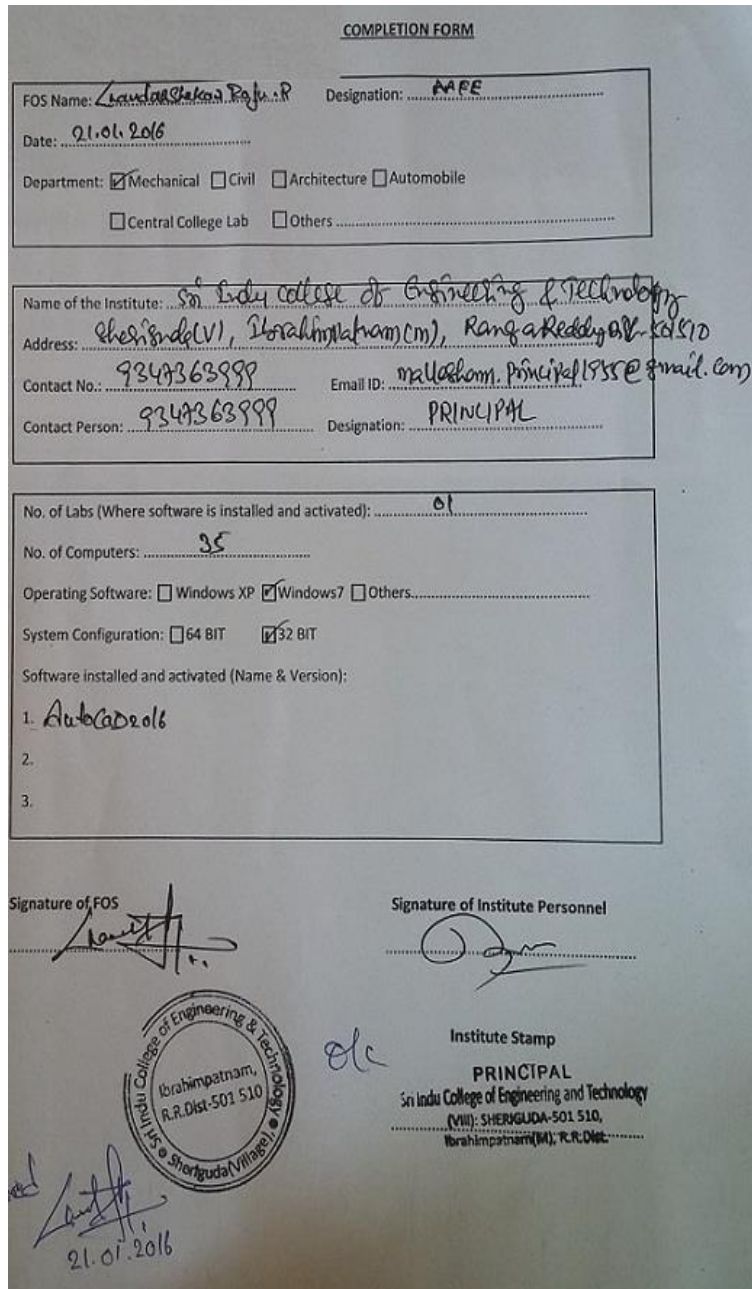 COMPLETION FORM
FOS Name: Chandrashekar Raju.R Designation: AAFE
Date: 21.01.2016
Department: ☑Mechanical ☐Civil ☐Architecture ☐Automobile
☐Central College Lab ☐Others
Name of the Institute: Sri Indu College of Engineering & Technology
Address: Sheriguda(V), Ibrahimpatnam(m), Ranga Reddy 501510
Contact No.: 9347363999 Email ID: mallasham.principal1955@gmail.com
Contact Person: 9347363999 Designation: PRINCIPAL
No. of Labs (Where software is installed and activated): 01
No. of Computers: 35
Operating Software: ☐ Windows XP ☑Windows7 ☐Others
System Configuration: ☐64 BIT ☑32 BIT
Software installed and activated (Name & Version):
1. AutoCAD2016
2.
3.
Signature of FOS Signature of Institute Personnel
Sri Indu College of Engineering & Technology
Ibrahimpatnam,
R.R.Dist-501 510
Sheriguda(Village)
o/c
Institute Stamp
PRINCIPAL
Sri Indu College of Engineering and Technology
(Vill): SHERIGUDA-501 510,
Ibrahimpatnam(M), R.R.Dist.
21.01.2016